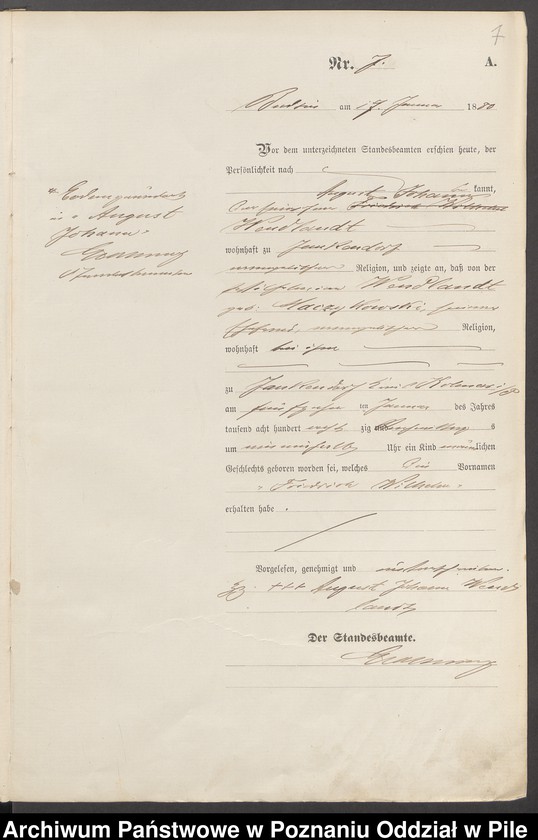 7
Nr. 7. A.
Budsin am 17 Januar 1880
Vor dem unterzeichneten Standesbeamten erschien heute, der
Persönlichkeit nach
August Johann kannt,
der
Wendlandt
wohnhaft zu Jankendorf
evangelischer Religion, und zeigte an, daß von der
Wendlandt
geb: seiner
Ehefrau, evangelischer Religion,
wohnhaft bei ihm
zu Jankendorf Kreis Kolmar i/P
am fünfzehn ten Januar des Jahres
tausend acht hundert acht zig und s
um Uhr ein Kind männlichen
Geschlechts geboren worden sei, welches die Vornamen
Friedrich Wilhelm
erhalten habe.
Vorgelesen, genehmigt und unterschrieben.
+++ August Johann Wend
landt
Der Standesbeamte.
August
Johann
Standesbeamter
Archiwum Państwowe w Poznaniu Oddział w Pile